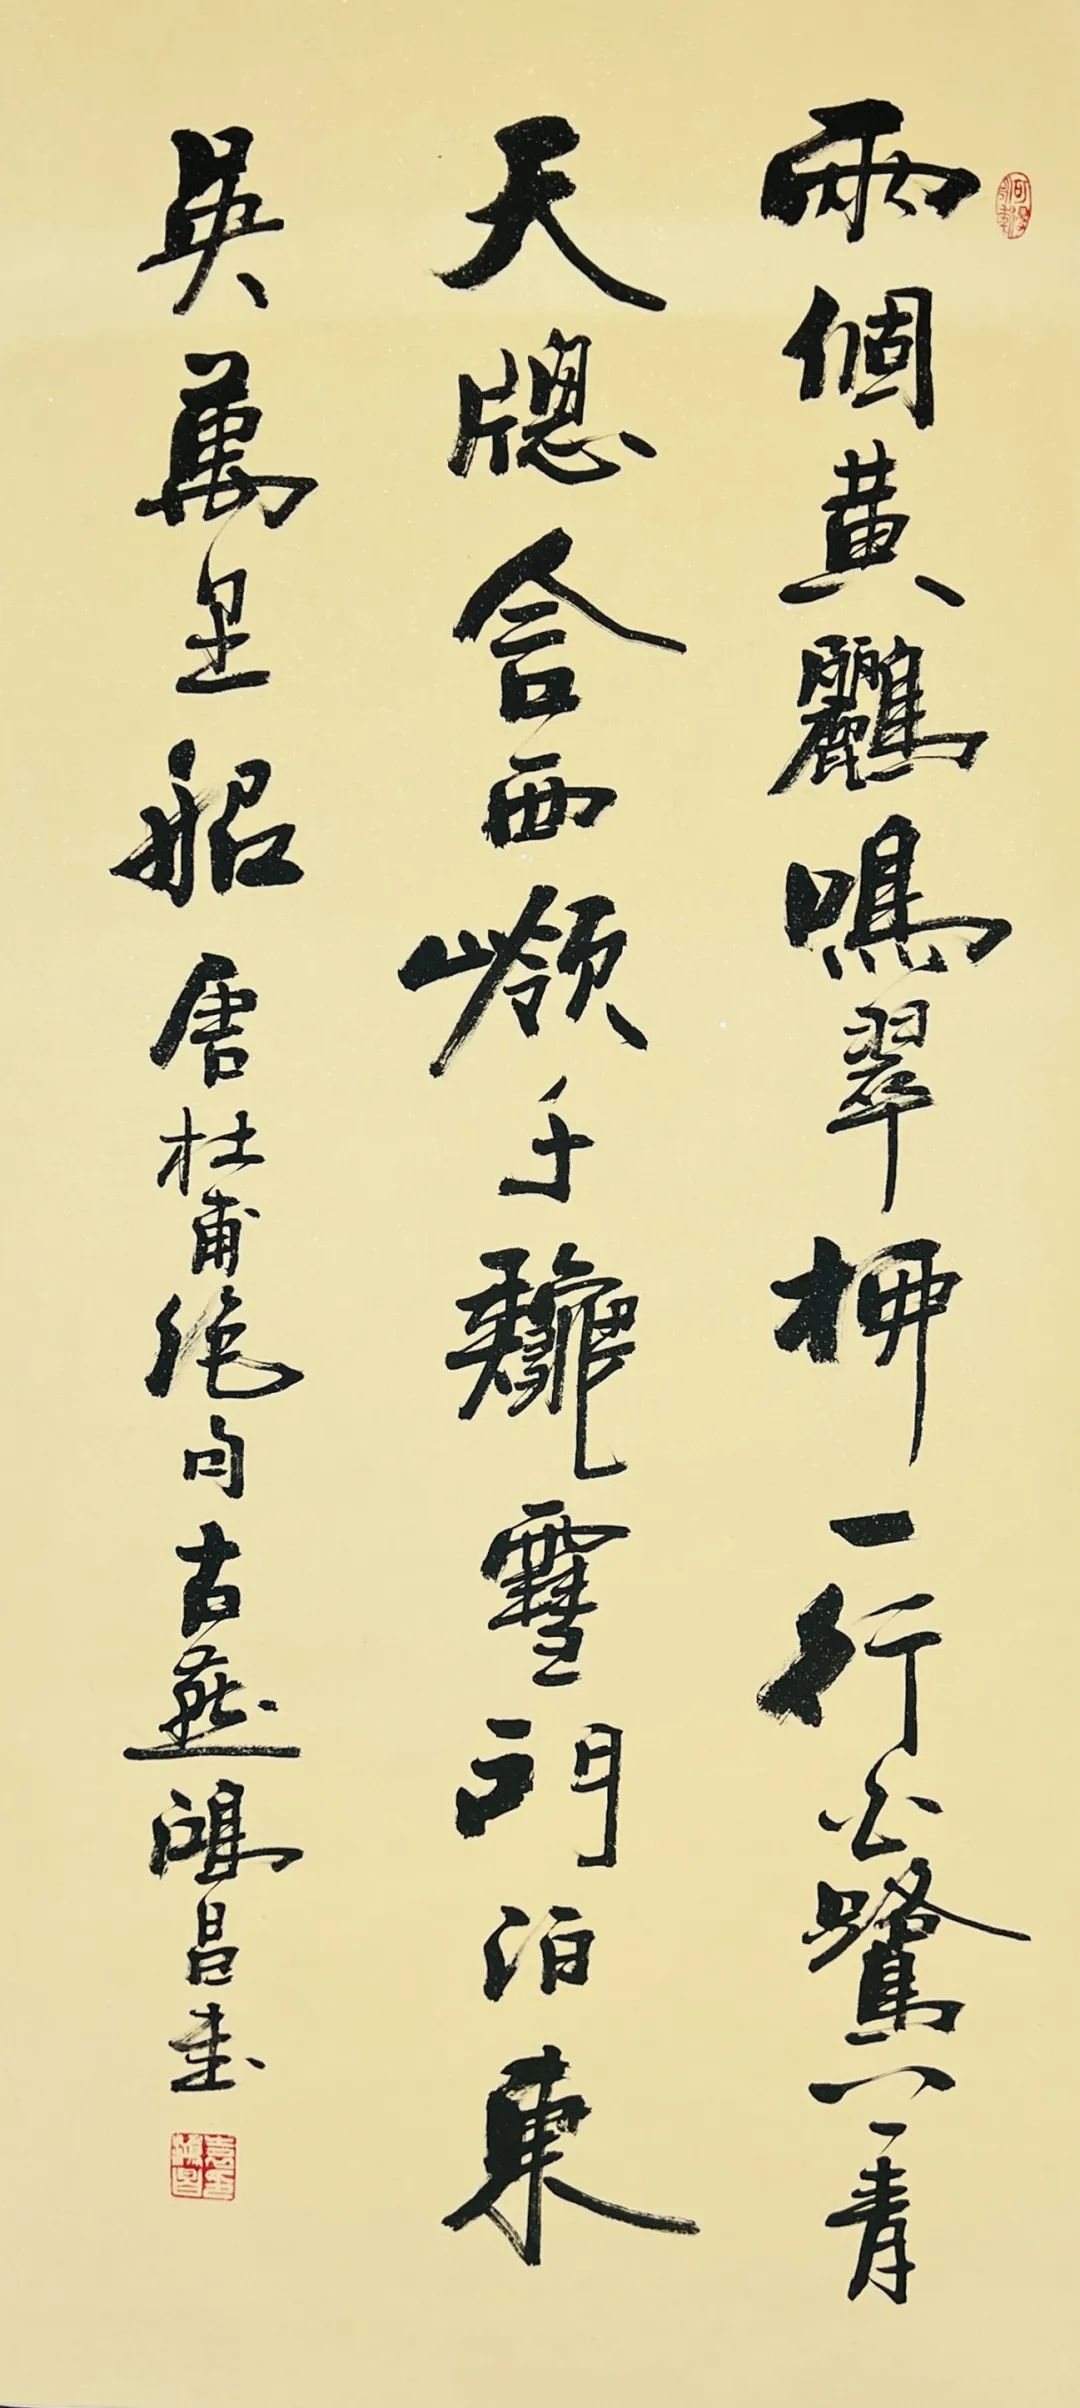 兩個黄鸝鳴翠柳一行白鷺上青
天牕含西嶺千龝雪門泊東
吳萬里船 唐杜甫絶句古燕鴻昌書